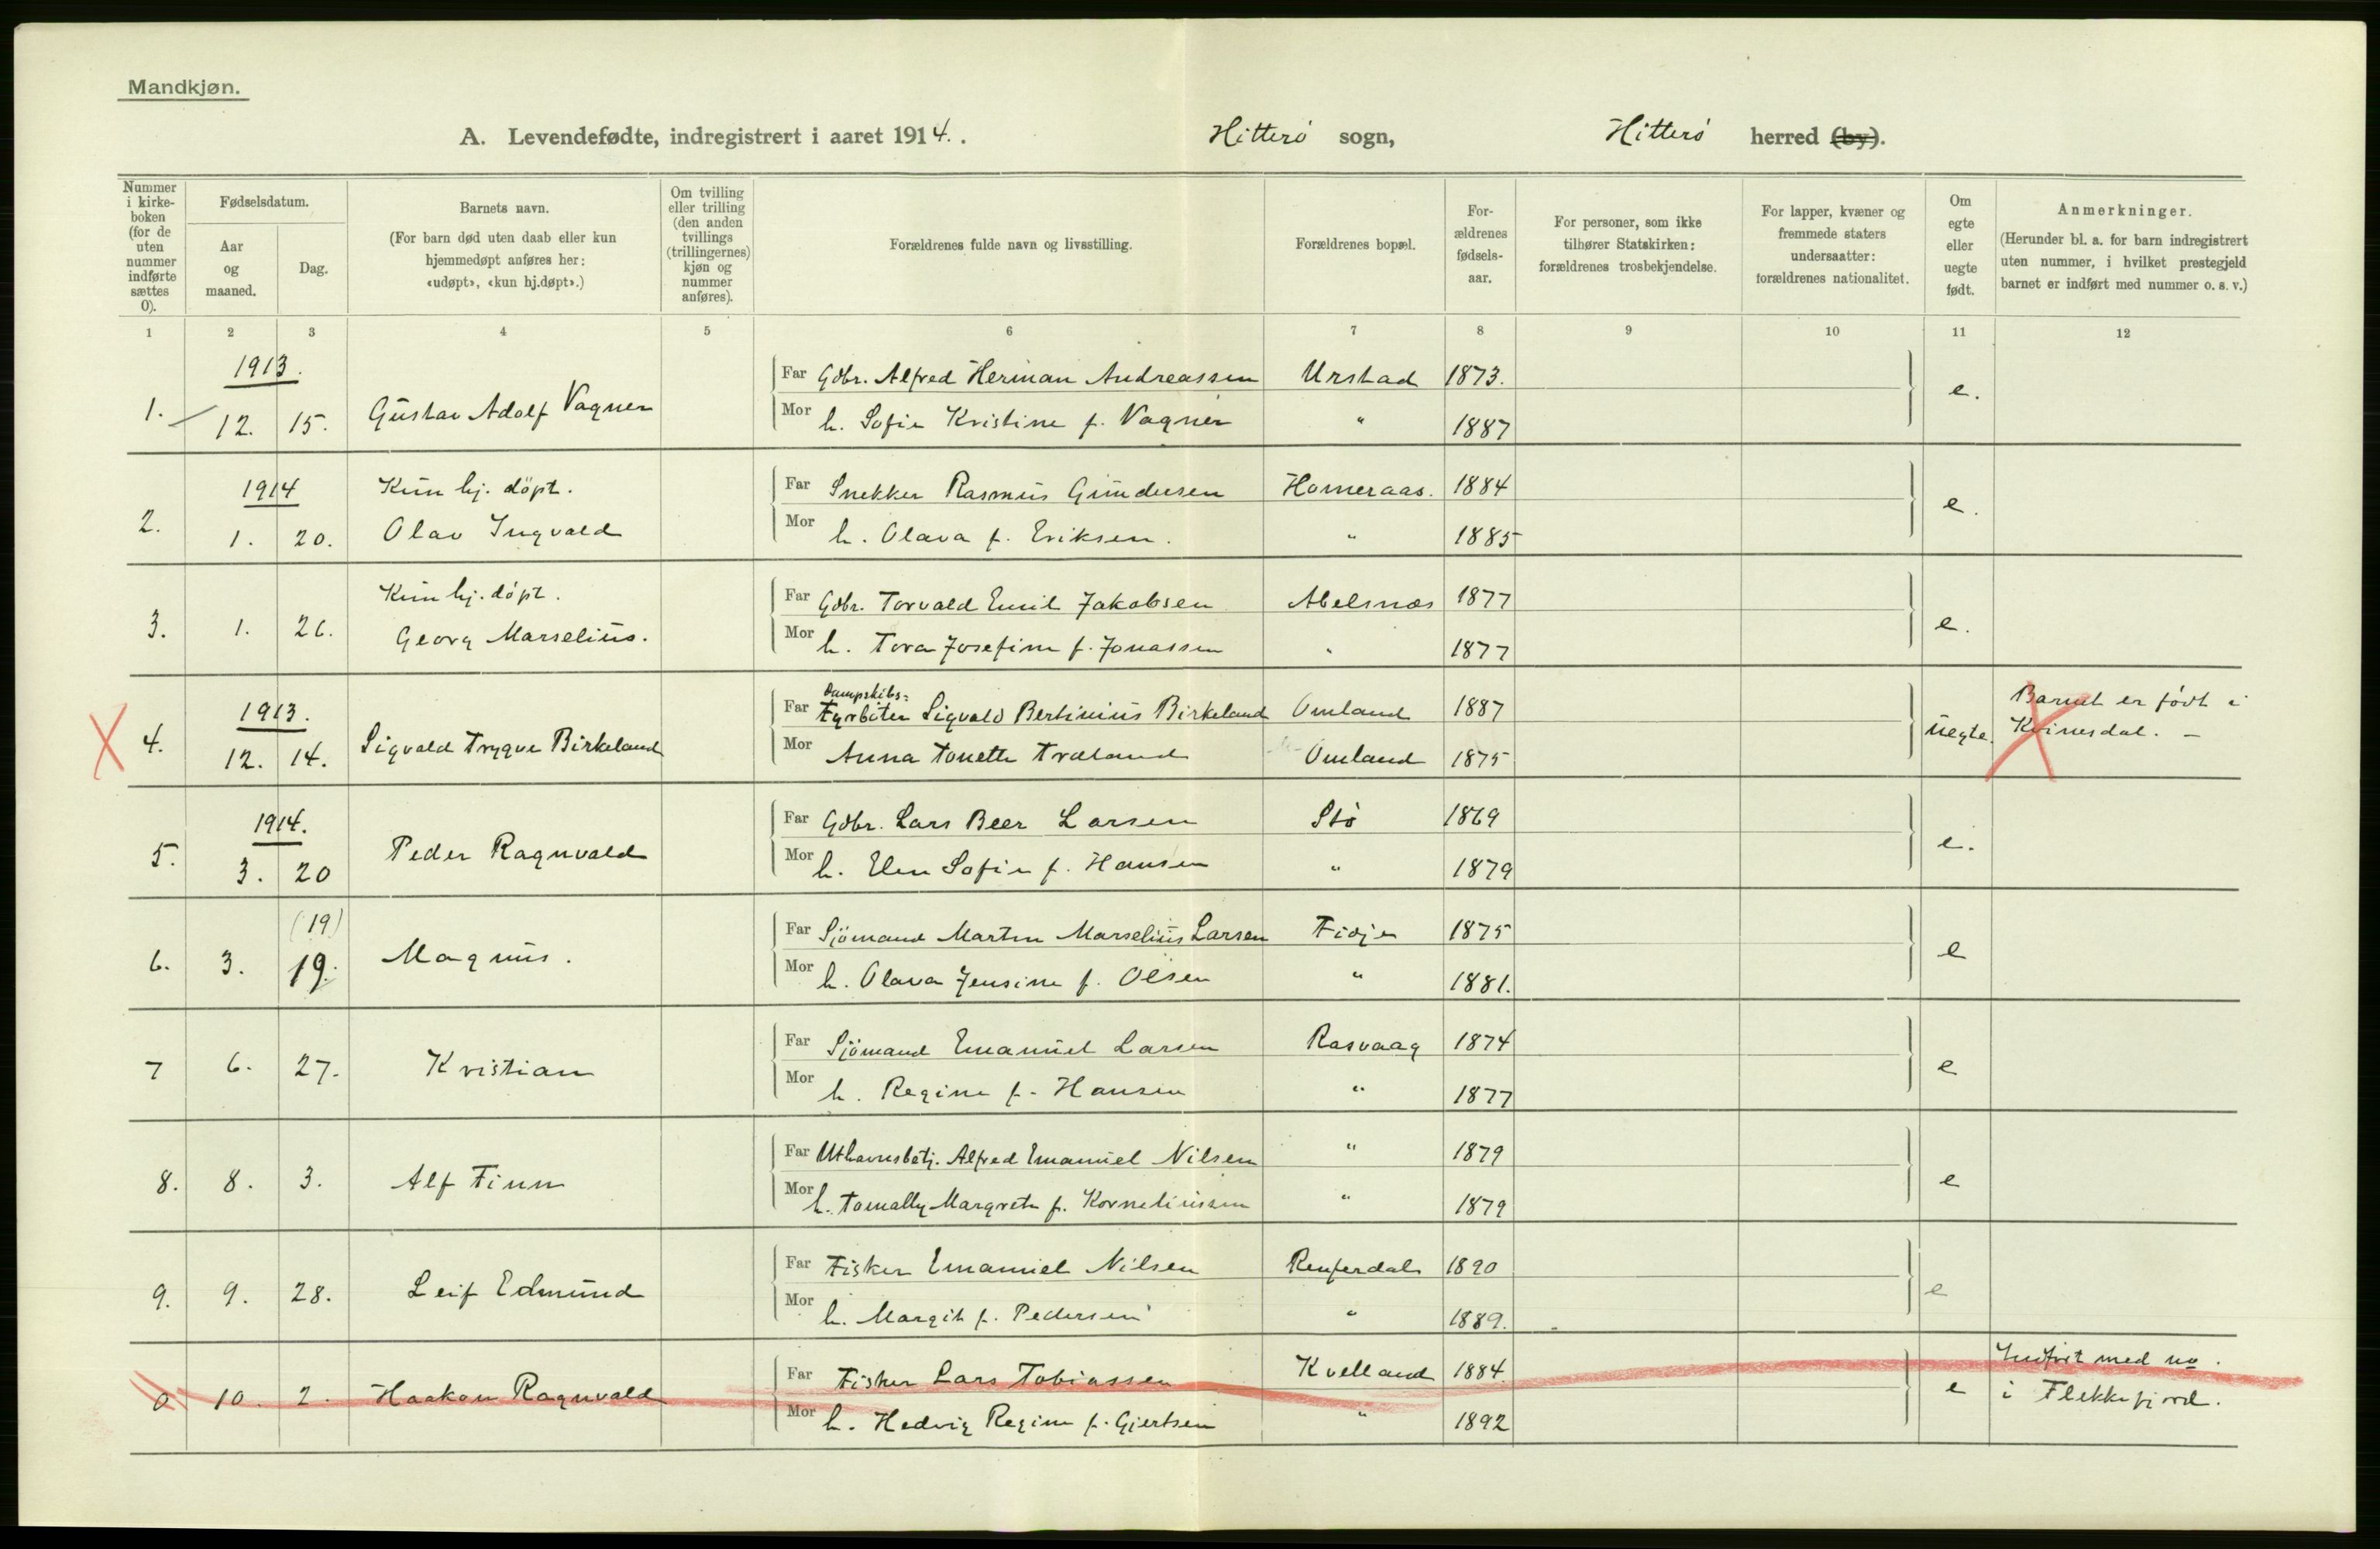 Mandkjøn.
A. Levendefødte, indregistrert i aaret 1914. . Hitterö sogn, Hitterö herred (by).
Nummer i kirke-boken (for de uten nummer indførte sættes 0).
Fødselsdatum.
Aar og maaned.
Dag.
Barnets navn.
(For barn død uten daab eller kun hjemmedøpt anføres her: «udøpt», «kun hj.døpt».)
Om tvilling eller trilling (den anden tvillings (trillingernes) kjøn og nummer anføres).
Forældrenes fulde navn og livsstilling.
Forældrenes bopæl.
For-ældrenes fødsels-aar.
For personer, som ikke tilhører Statskirken: forældrenes trosbekjendelse.
For lapper, kvæner og fremmede staters undersaatter: forældrenes nationalitet.
Om egte eller uegte født.
Anmerkninger.
(Herunder bl. a. for barn indregistrert uten nummer, i hvilket prestegjeld barnet er indført med nummer o. s. v.)
1 2 3 4 5 6 7 8 9 10 11 12
1913.
1. 12. 15. Gustav Adolf Vagner
Far Gdbr. Alfred Herman Andreassen Urstad 1873.
Mor h. Sofie Kristine f. Vagner " 1887
e.
1914
2. 1. 20. Kun hj. döpt.
Olav Ingvald
Far Snekker Rasmus Gundersen Homeraas. 1884
Mor h. Olava f. Eriksen. " 1885
e.
3. 1. 26. Kun hj. döpt.
Georg Marselius.
Far Gdbr. Torvald Emil Jakobsen Abelsnæs 1877
Mor h. Tora Josefine f. Jonassen " 1877
e.
1913.
4. 12. 14. Sigvald Trygve Birkeland
Dampskibs-
Far Fyrböter Sigvald Bertinius Birkeland Omland 1887
Mor Anna Tonette Træland Omland 1875
uegte.
Barnet er födt i
Kvinesdal. -
1914.
5. 3. 20 Peder Ragnvald
Far Gdbr. Lars Beer Larsen Stö 1869
Mor h. Elen Sofie f. Hansen " 1879
e.
(19)
6. 3. 19. Magnus.
Far Sjömand Martin Marselius Larsen Fidje 1875
Mor h. Olava Jensine f. Olsen " 1881.
e
7 6. 27. Kristian
Far Sjömand Emanuel Larsen Rasvaag 1874
Mor h. Regine f. Hansen " 1877
e
8. 8. 3. Alf Finn
Far Uthavnsbetj. Alfred Emanuel Nilsen " 1879
Mor h. Tomally Margrete f. Korneliussen " 1879
e
9. 9. 28. Leif Edmund
Far Fisker Emanuel Nilsen Renferdal 1890
Mor h. Margit f. Pedersen " 1889.
e
0 10. 2. Haakon Ragnvald
Far Fisker Lars Tobiassen Kvelland 1884
Mor h. Hedvig Regine f. Gjertsen " 1892
e
Indfört med no.
i Flekkefjord.